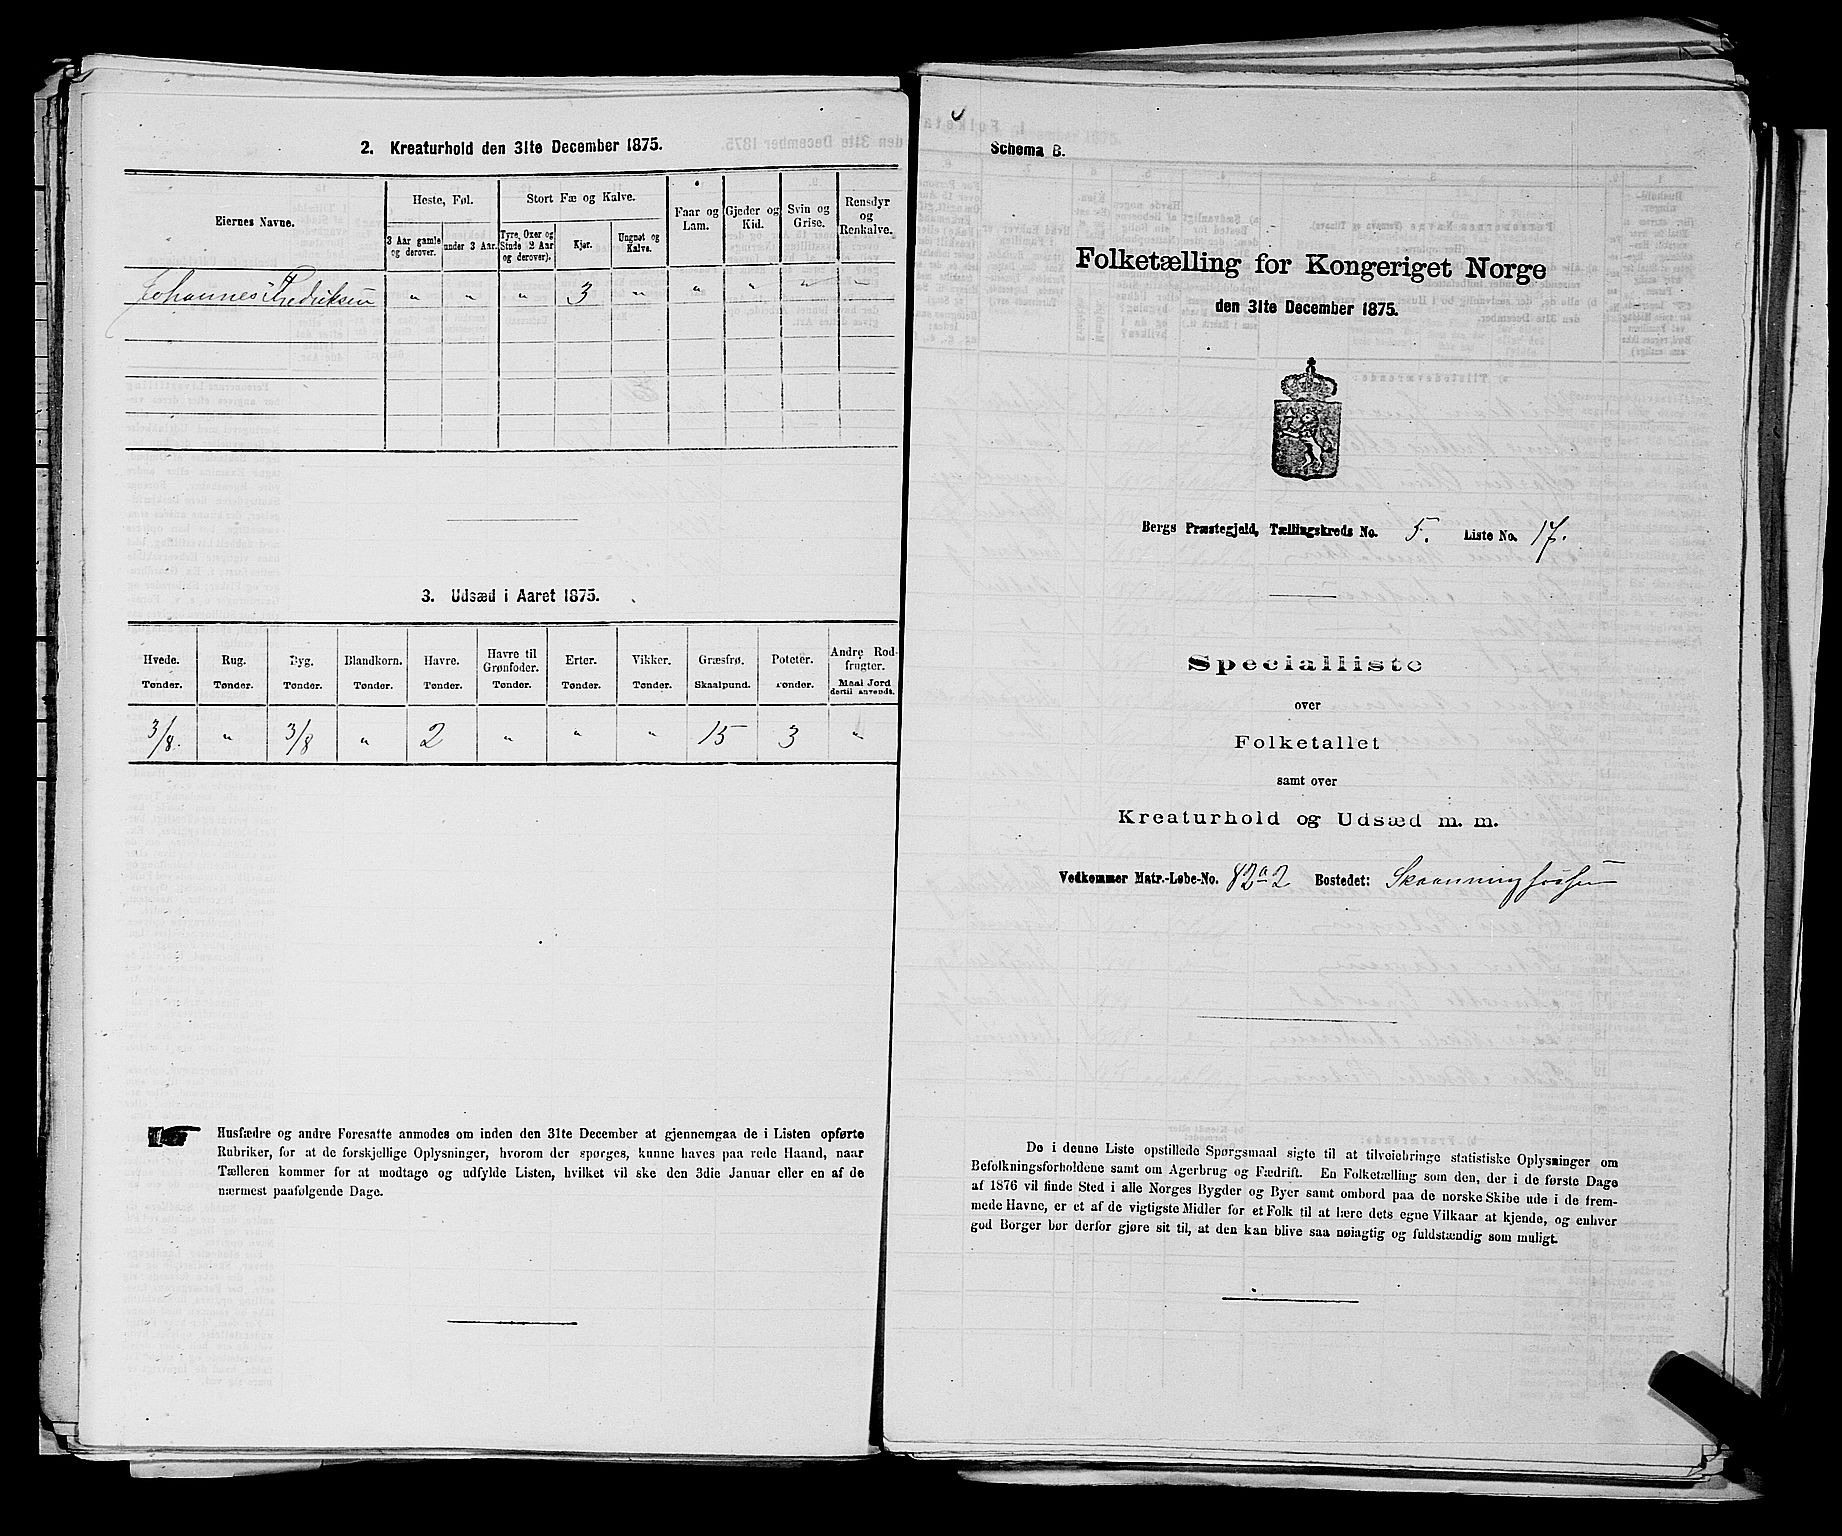 2. Kreaturhold den 31te December 1875.
Eiernes Navne.
Heste, Føl.
Stort Fæ og Kalve.
Faar og Lam.
Gjeder og Kid.
Svin og Grise.
Rensdyr og Renkalve.
3 Aar gamle og derover.
under 3 Aar.
Tyre, Oxer og Stude (2 Aar og derover).
Kjør.
Ungnøt og Kalve.
Johannes Fredriksen " " " 3 " " " " "
3. Udsæd i Aaret 1875.
Hvede. Rug. Byg. Blandkorn. Havre. Havre til Grønfoder. Erter. Vikker. Græsfrø. Poteter. Andre Rodfrugter.
Tønder. Tønder. Tønder. Tønder. Tønder. Tønder. Tønder. Tønder. Skaalpund. Tønder. Maal Jord dertil anvendt.
3/8. " 3/8 " 2 " " " 15 3 "
Husfædre og andre Foresatte anmodes om inden den 31te December at gjennemgaa de i Listen opførte
Rubriker, for at de forskjellige Oplysninger, hvorom der spørges, kunne haves paa rede Haand, naar
Tælleren kommer for at modtage og udfylde Listen, hvilket vil ske den 3die Januar eller en af de
nærmest paafølgende Dage.
Schema B.
Folketælling for Kongeriget Norge
den 31te December 1875.
Bergs Præstegjeld, Tællingskreds No. 5. Liste No. 17.
Specialliste
over
Folketallet
samt over
Kreaturhold og Udsæd m. m.
Vedkommer Matr.-Løbe-No. 82a2 Bostedet:
De i denne Liste opstillede Spørgsmaal sigte til at tilveiebringe statistiske Oplysninger om
Befolkningsforholdene samt om Agerbrug og Fædrift. En Folketælling som den, der i de første Dage
af 1876 vil finde Sted i alle Norges Bygder og Byer samt ombord paa de norske Skibe ude i de frem-
mede Havne, er et af de vigtigste Midler for et Folk til at lære dets egne Vilkaar at kjende, og enhver
god Borger bør derfor gjøre sit til, at den kan blive saa nøiagtig og fuldstændig som muligt.